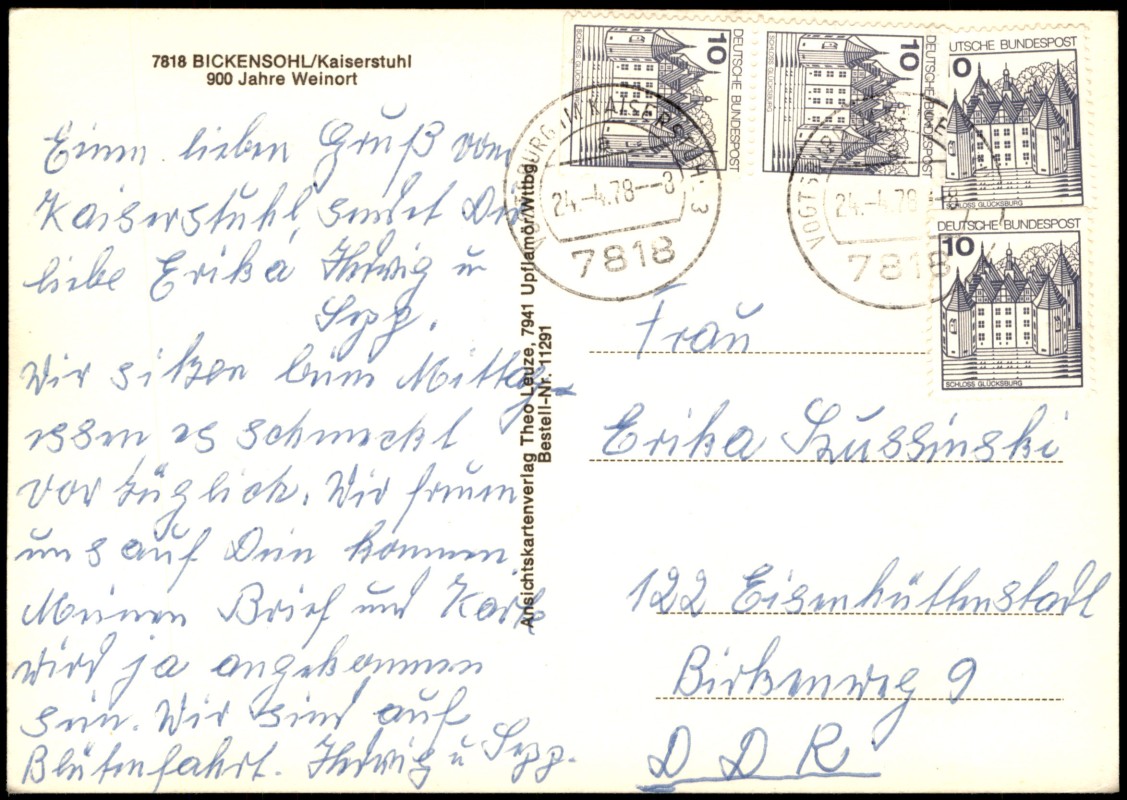 7818 BICKENSOHL/Kaiserstuhl
900 Jahre Weinort
Einen lieben Gruß vom
Kaiserstuhl, sendet Dir
liebe Erika Hedwig u
Sepp.
Wir sitzen beim Mittag-
essen es schmeckt
vorzüglich. Wir freuen
uns auf Dein kommen.
Meinen Brief und Karte
wird ja angekommen
sein. Wir sind auf
Blütenfahrt. Hedwig u Sepp.
Ansichtskartenverlag Theo Leuze, 7941 Upflamör/Wttbg.
Bestell-Nr. 11291
10
DEUTSCHE BUNDESPOST
10
DEUTSCHE BUNDESPOST
SCHLOSS GLÜCKSBURG
0
UTSCHE BUNDESPOST
SCHLOSS GLÜCKSBURG
DEUTSCHE BUNDESPOST
10
SCHLOSS GLÜCKSBURG
VOGTSBURG IM KAISERSTUHL 3
24.-4.78--8
7818
24.-4.78-18
7818
Frau
Erika
122 Eisenhüttenstadt
Birkenweg 9
DDR